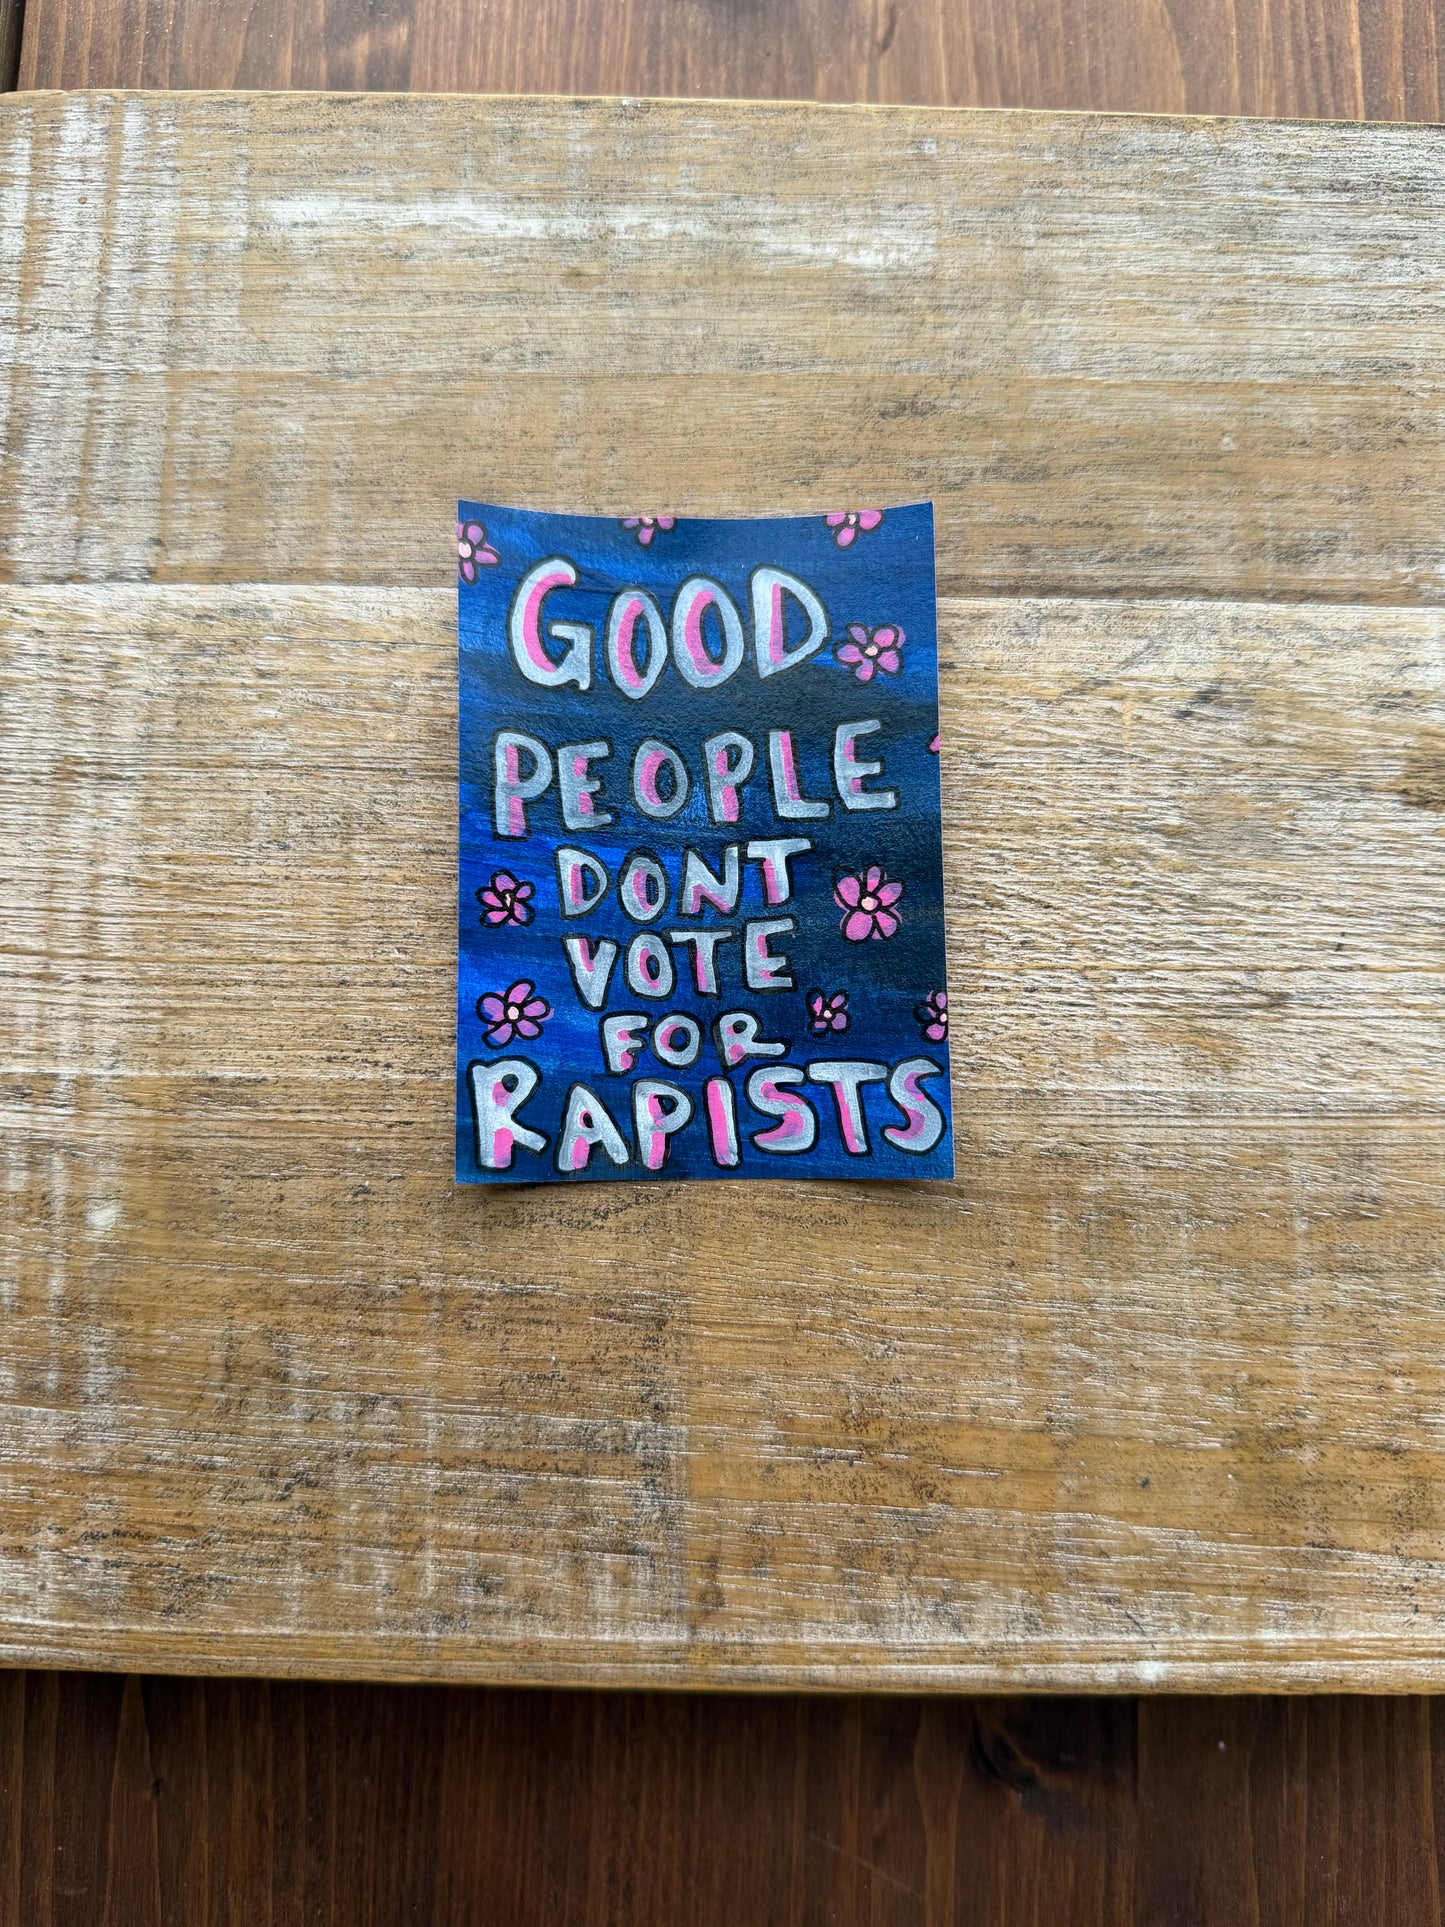 GOOD
PEOPLE
DONT
VOTE
FOR
RAPISTS